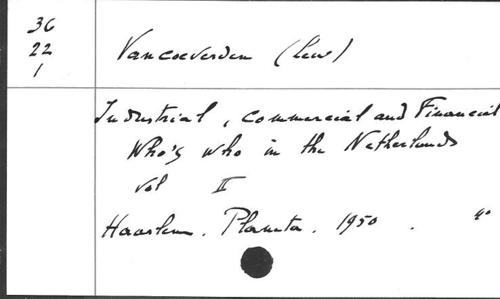 36
22
1
Vancoeverden (Lew)
Industrial, commercial and Financial
Who's who in the Netherlands
Vol II
Haarlem. Planeta. 1950. 4°